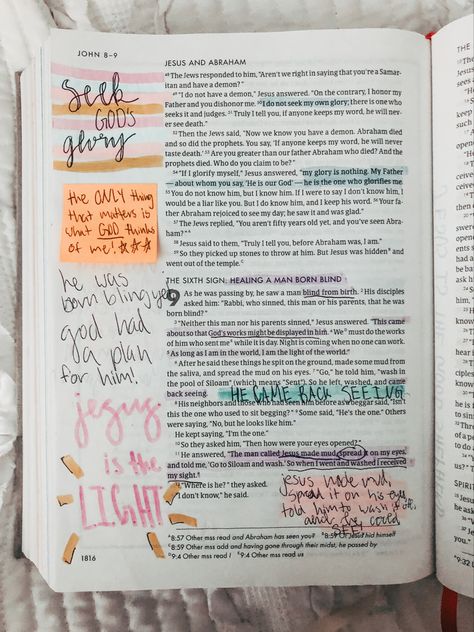 JOHN 8–9
Seek
GOD'S
glory
the ONLY thing
that matters is
what GOD thinks
of me!
he was
born bling ye
god had
a plan
for him!
jesus
is the
LIGHT
1816
JESUS AND ABRAHAM
48 The Jews responded to him, "Aren't we right in saying that you're a Samar-
itan and have a demon?"
49 "I do not have a demon," Jesus answered. "On the contrary, I honor my
Father and you dishonor me. 50 I do not seek my own glory; there is one who
seeks it and judges. 51 Truly I tell you, if anyone keeps my word, he will nev-
er see death."
52 Then the Jews said, "Now we know you have a demon. Abraham died
and so did the prophets. You say, 'If anyone keeps my word, he will never
taste death.' 53 Are you greater than our father Abraham who died? And the
prophets died. Who do you claim to be?"
54 "If I glorify myself," Jesus answered, "my glory is nothing. My Father
— about whom you say, 'He is our God' — he is the one who glorifies me.
55 You do not know him, but I know him. If I were to say I don't know him, I
would be a liar like you. But I do know him, and I keep his word. 56 Your fa-
ther Abraham rejoiced to see my day; he saw it and was glad."
57 The Jews replied, "You aren't fifty years old yet, and you've seen Abra-
ham?"
58 Jesus said to them, "Truly I tell you, before Abraham was, I am."
59 So they picked up stones to throw at him. But Jesus was hidden and
went out of the temple.
THE SIXTH SIGN: HEALING A MAN BORN BLIND
9 As he was passing by, he saw a man blind from birth. 2 His disciples
asked him: "Rabbi, who sinned, this man or his parents, that he was
born blind?"
3 "Neither this man nor his parents sinned," Jesus answered. "This came
about so that God's works might be displayed in him. 4 We must do the works
of him who sent me while it is day. Night is coming when no one can work.
5 As long as I am in the world, I am the light of the world."
6 After he said these things he spit on the ground, made some mud from
the saliva, and spread the mud on his eyes. 7 "Go," he told him, "wash in
the pool of Siloam" (which means "Sent"). So he left, washed, and came
back seeing. HE CAME BACK SEEING
8 His neighbors and those who had seen him before as a beggar said, "Isn't
this the one who used to sit begging?" 9 Some said, "He's the one." Others
were saying, "No, but he looks like him."
He kept saying, "I'm the one."
10 So they asked him, "Then how were your eyes opened?"
11 He answered, "The man called Jesus made mud, spread it on my eyes,
and told me, 'Go to Siloam and wash.' So when I went and washed I received
my sight."
12 "Where is he?" they asked.
"I don't know," he said.
jesus made mud,
spread it on his eyes
told him to wash it off,
and he could
SEE!
8:57 Other mss read and Abraham has seen you? 8:59 Jesus hid himself
8:59 Other mss add and having gone through their midst, he passed by
9:4 Other mss read I 9:4 Other mss read us